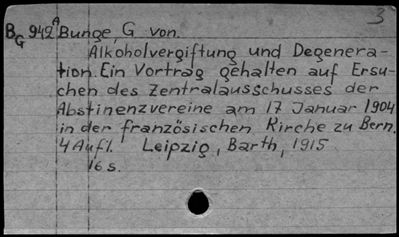 3
BG 942A Bunge, G von.
Alkoholvergiftung und Degenera-
tion. Ein Vortrag gehalten auf Ersu-
chen des Zentralausschusses der
Abstinenzvereine am 17 Januar 1904
in der französischen Kirche zu Bern.
4 Aufl. Leipzig, Barth, 1915
16 s.